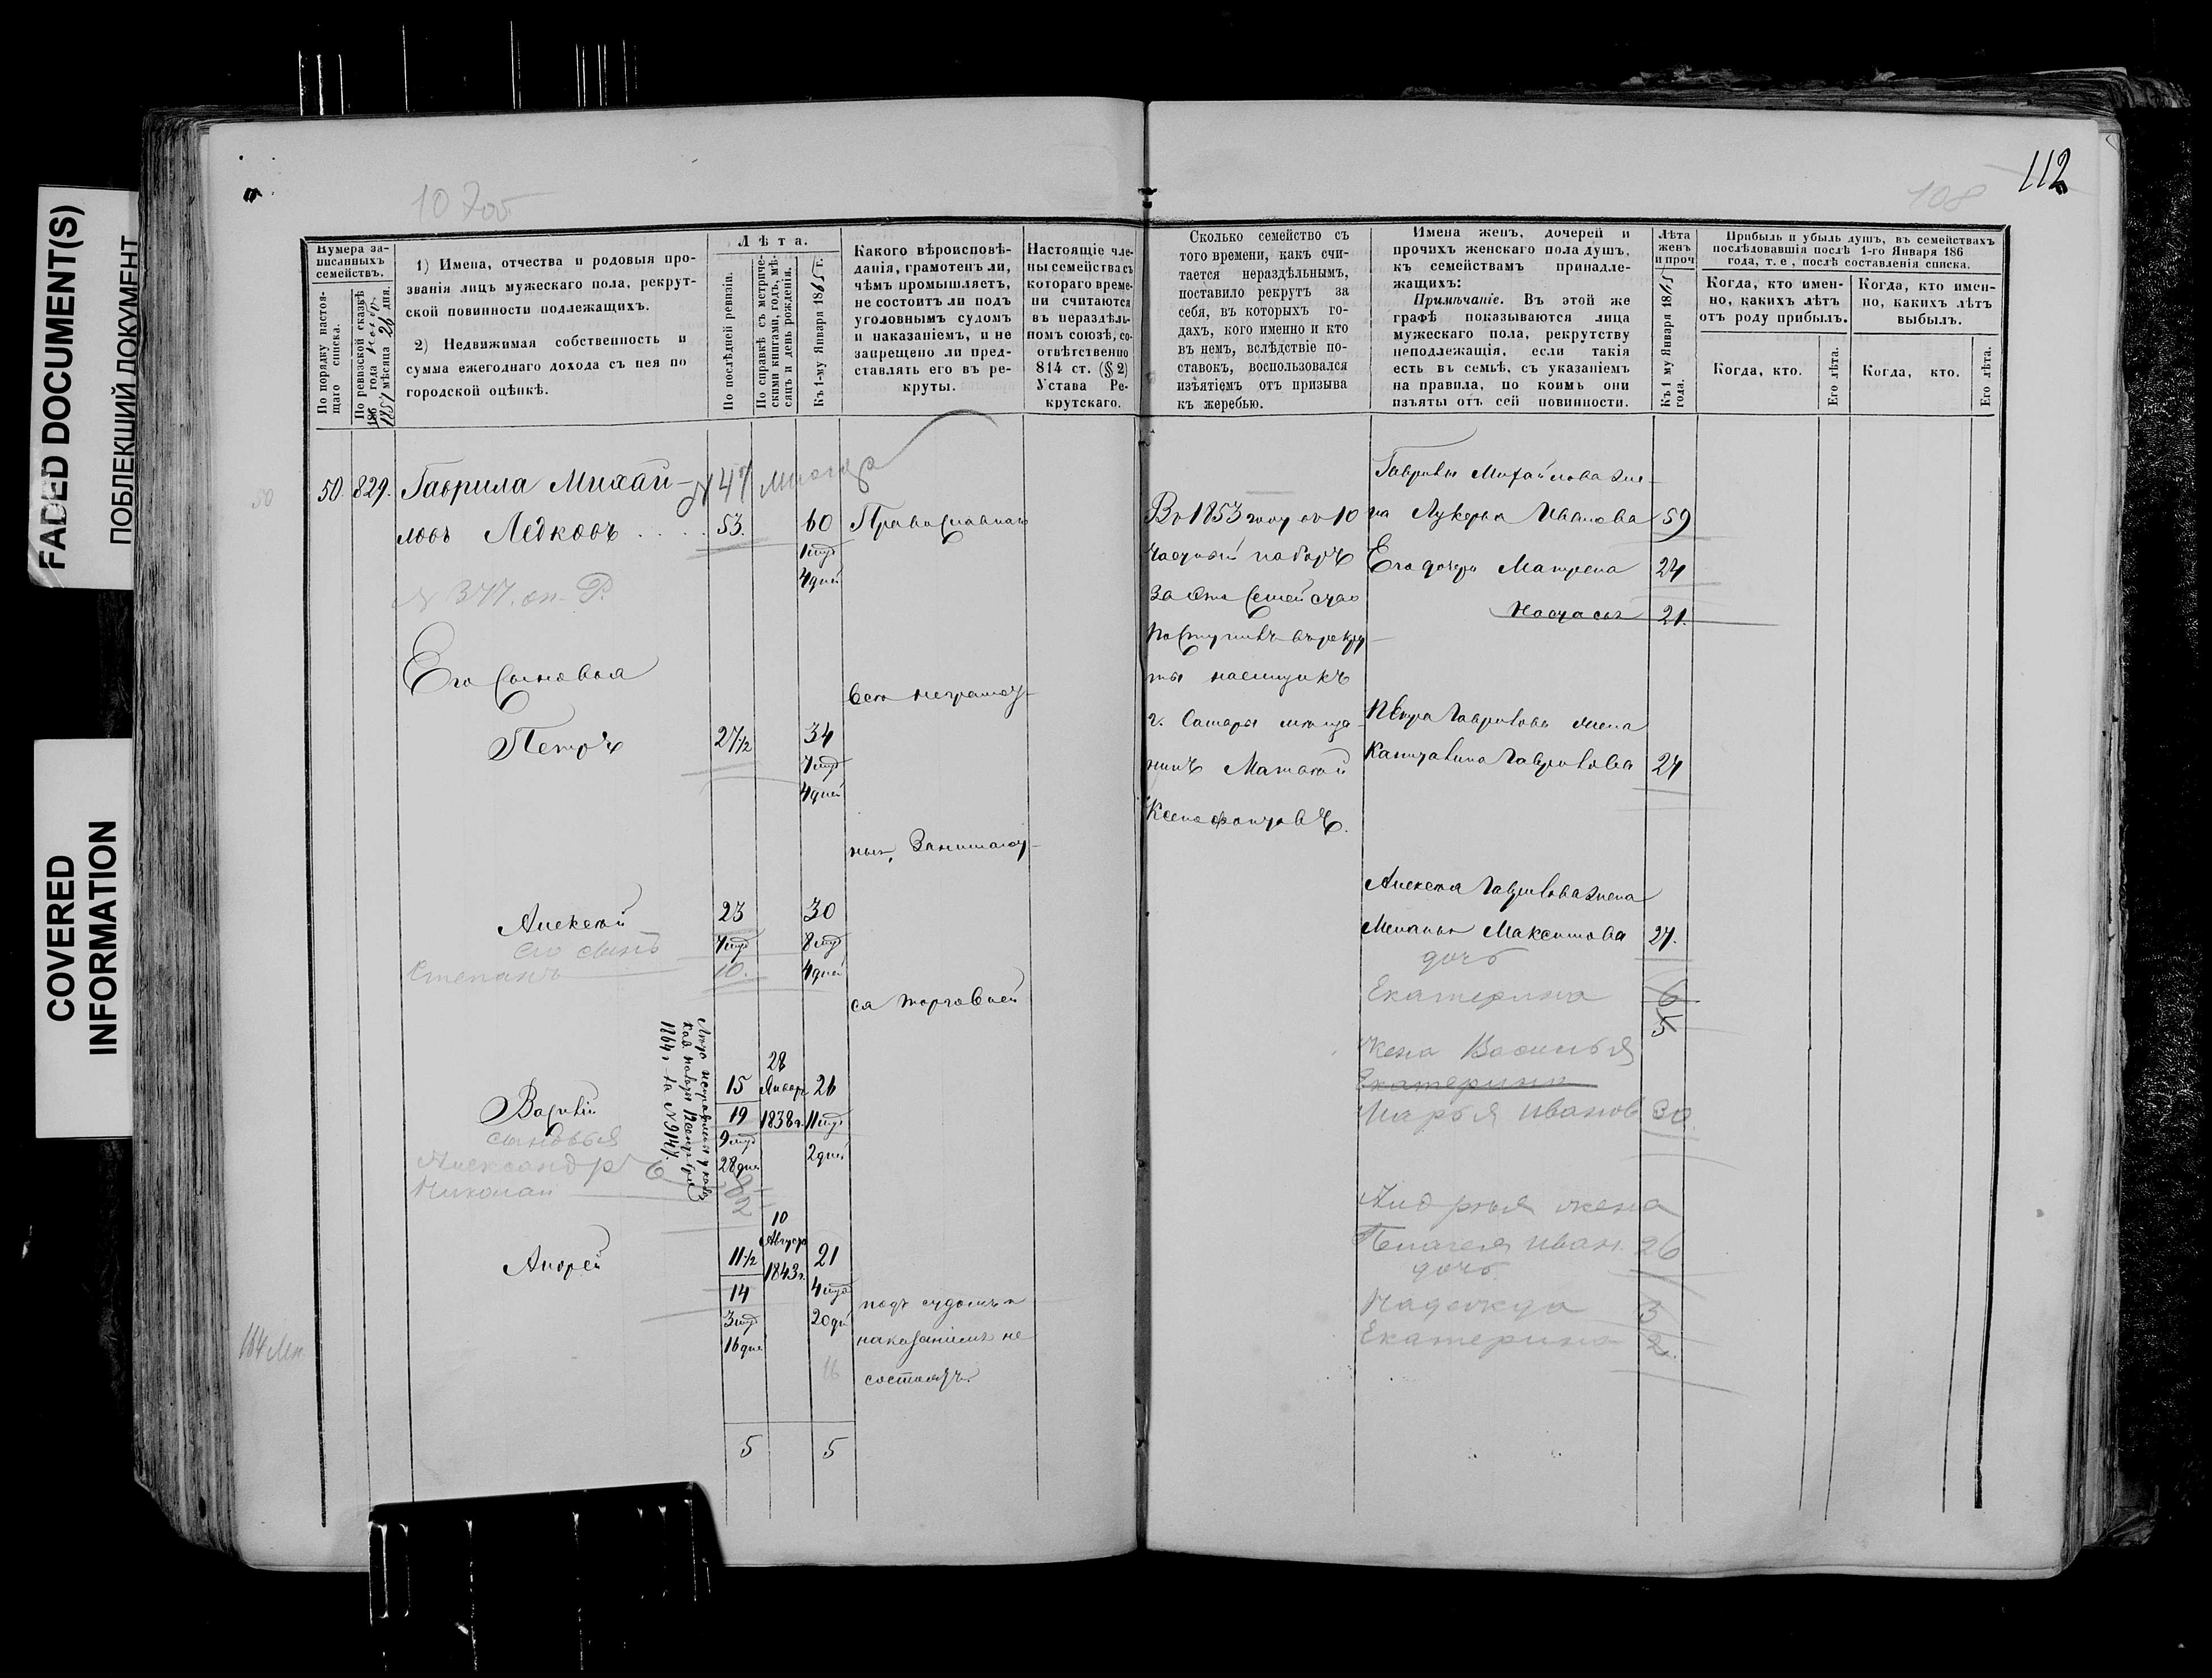 FADED DOCUMENT(S)
ПОБЛЕКШИЙ ДОКУМЕНТ
COVERED
INFORMATION
112
108
Нумера за-
писанныхъ
семействъ.
По порядку настоя-
щаго списка.
По ревизской сказкѣ
185 года
1857 мѣсяца 26 дня.
1) Имена, отчества и родовыя про-
званія лицъ мужескаго пола, рекрут-
ской повинности подлежащихъ.
2) Недвижимая собственность и
сумма ежегоднаго дохода съ нея по
городской оцѣнкѣ.
Лѣта.
По послѣдней ревизіи.
По справкѣ съ метриче-
скими книгами, годъ, мѣ-
сяцъ и день рожденія.
Къ 1-му Января 1865 г.
Какого вѣроисповѣ-
данія, грамотенъ ли,
чѣмъ промышляетъ,
не состоитъ ли подъ
уголовнымъ судомъ
и наказаніемъ, и не
запрещено ли пред-
ставлять его въ ре-
круты.
Настоящіе чле-
ны семейства съ
котораго време-
ни считаются
въ нераздѣль-
номъ союзѣ, со-
отвѣтственно
814 ст. (§ 2)
Устава Ре-
крутскаго.
Сколько семейство съ
того времени, какъ счи-
тается нераздѣльнымъ,
поставило рекрутъ за
себя, въ которыхъ го-
дахъ, кого именно и кто
въ немъ, вслѣдствіе по-
ставокъ, воспользовался
изъятіемъ отъ призыва
къ жеребью.
Имена женъ, дочерей и
прочихъ женскаго пола душъ,
къ семействамъ принадле-
жащихъ:
Примѣчаніе. Въ этой же
графѣ показываются лица
мужескаго пола, рекрутству
неподлежащія, если такія
есть въ семьѣ, съ указаніемъ
на правила, по коимъ они
изъяты отъ сей повинности.
Лѣта
женъ
и проч
Къ 1 му Января 1865
года.
Прибыль и убыль душъ, въ семействахъ
послѣдовавшія послѣ 1-го Января 186
года, т. е, послѣ составленія списка.
Когда, кто имен-
но, какихъ лѣтъ
отъ роду прибылъ.
Когда, кто имен-
но, какихъ лѣтъ
выбылъ.
Когда, кто.
Его лѣта.
Когда, кто.
Его лѣта.
50
50. 829. Гаврила Михай-
ловъ Ледковъ . . . . 53. 60 Православнаго
1 мѣс
4 дней
N 377.
Его сыновья
всѣ неграмот-
Петръ 27½ 34
7 мѣс
4 дней
ны, Занимают-
Алексѣй 23 30
его сынъ 7 мѣс 8 мѣс
Степанъ 10. 4 дней
ся торговлей
28
15 Январ 26
Василій 19 1838 г. 11 мѣс
сыновья 9 мѣс 2 дней
Александръ 6 28 дне
Николай 2
Лѣта исправлены
1864 г. за N 9141.
10
Август
Андрей 11½ 1843 г. 21
14 4 мѣс
3 мѣс 20 дн
16 дне
подъ судомъ и
наказаніемъ не
состоятъ.
5 5
Въ 1853 году въ 10
частный наборъ
за это семейство
поступилъ въ рекру-
ты наемщикъ
г. Самары мѣща-
нинъ Матвѣй
Ксенофонтовъ.
Гаврилы Михайлова же-
на Лукерья Иванова 59
Его дочери Матрена 24
Настасья 21.
Петра Гаврилова жена
Капитолина Гаврилова 27
Алексѣя Гаврилова жена
Меланья Максимова 27.
дочь
Екатерина 6
5
жена Василья
Екатерина
Марья Иванов 30.
Андрея жена
Пелагея Иван. 26
дочь
Надежда 3
Екатерина 2.